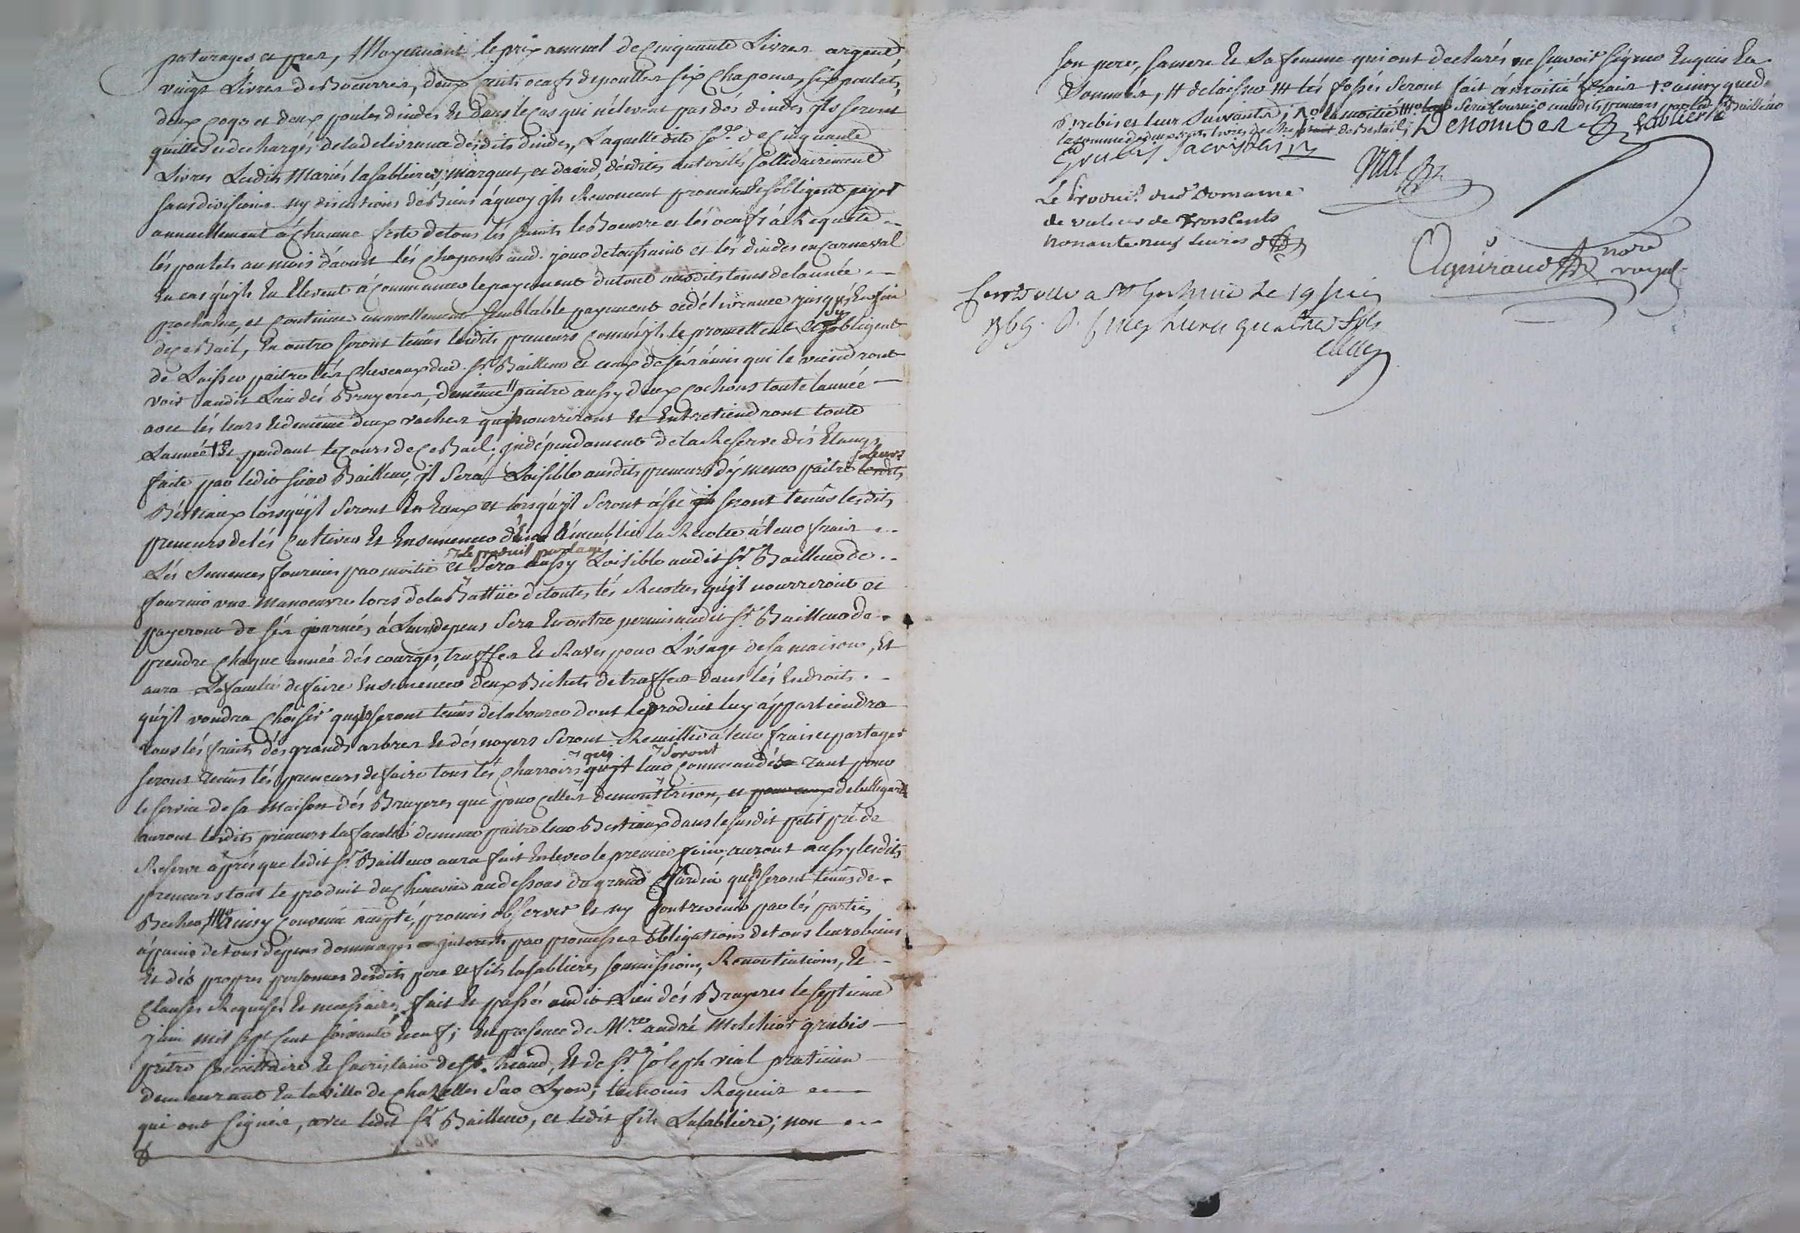 paturages et pres, Moyennant le prix annuel de Cinquante Livres argent,
vingt Livres de Boeurre, deux cents oeufs de poulles six Chapons, six poulets,
deux coqs et deux poules dindes Et dans le cas qui nélevent pas des dindes, ils seront
quittes et dechargés de la delivrance desdits dindes, Laquelle dite de Cinquante
Livres Lesdits Mariés lasabliere, marquet, et david, dédites autorités sollidairement
sans division ny discutions de Biens à quoy ils Renoncent promettent sobligent payer
annuellement à Chacune feste de tous les saints le Boeurre et lés oeufs à sa Requette
lés poulets au mois d'aoust lés Chapons aud. jour de toussaints et lés dindes en Carnaval
En cas qu'ils En Elevent à Commancer le payement du tout auxdits tems de lannée
prochaine, et Continuer annuellement semblable payement et délivrance jusqu'en fin
de ce Bail, En outre seront tenus lesdits preneurs comme ils le promettent et s'obligent
de Laisser paitre lés Chevaux dud. Sr. Bailleur et ceux de ses amis qui le viendront
voir audit Lieu dés Bruyeres, de même paitre aussy deux cochons toute lannée
avec lés leurs et de même deux vaches quils nourriront Et Entretiendront toute
Lannée et pendant le Cours de Ce Bail. indépendament de la Reserve dés Etangs
faite par ledit sieur Bailleur, il sera Loisible ausdits preneurs d'y mener paitre leurs
Béstiaux lorsqu'ils seront En Eaux et lorsqu'ils seront à sec seront tenus lesdits
preneurs de lés Cultiver Et Ensemencer d'En Emeublir la Recolte à leur frais
Lés Semences fournies par moitié et le produit partagé Sera aussy Loisible audit Sr. Bailleur de
fournir une Manoeuvre lors de la Battüe de toutes lés Recoltes qu'ils nourriront et
payeront de sés journées à Leurs depens Sera En outre permis audit Sr. Bailleur de
prendre Chaque année dés courges, truffes Et Raves pour L'usage de sa maison, Et
aura La faculté de faire Ensemencer deux Bichets de truffes dans lés Endroits
qu'il voudra Choisir quils seront tenus de labourer dont le produit luy appartiendra
tous lés fruits dés grands arbres Et dés noyers seront Recuillis à leur frais et partagés
seront tenus lés preneurs de faire tous lés Charrois qui leur seront Commandés Tant pour
le service de sa Maison dés Bruyeres que pour celles de montbrison, et de bellegarde
auront lesdits preneurs la faculté de mener paitre leur Bestiaux dans le susdit petit pré de
Reserve après que ledit Sr. Bailleur aura fait Enlever le premier foin, auront aussy lesdits
preneurs tout le produit du Chenevier au dessous du grand Jardin quils seront tenus de
Becher, Ainsy convenu accepté, promis observer Et ny Contrevenir par lés parties
à peine de tous dépens dommages intérests par promesses obligations de tous leurs biens
Et dés propres personnes desdits pere et fils lasabliere, soumissions, Renontiations, Et
Clauses Requises Et necessaires, fait Et passé audit Lieu dés Bruyeres le septieme
juin mil sept cent soixante neuf; En presence de Mre. andré Melchior grubis
prêtre secretaire Et sacristain de St. heand, Et de Sr. Joseph vial praticien
demeurant En la ville de Chazelles sur Lyon; temoins Requis
qui ont signés, avec ledit Sr. Bailleur, et ledit fils Lasabliere; non
son pere, sa mere Et Sa femme qui ont declarés ne sçavoir signer Enquis Et
Sommés, lés fossés seront fait à moitié frais
Brebis et leur Suivants, la moitié sera fournie auxdits preneurs par led Sr Bailleur
Denombez lasabliere
Grubis Sacristain
Vial
Le Provenu dud. Domaine
de valeur de trois cents
nonante neuf livres
Aguiraud nore
royal
Controllé a St Galmier Le 19 juin
1769. R. quatre sols